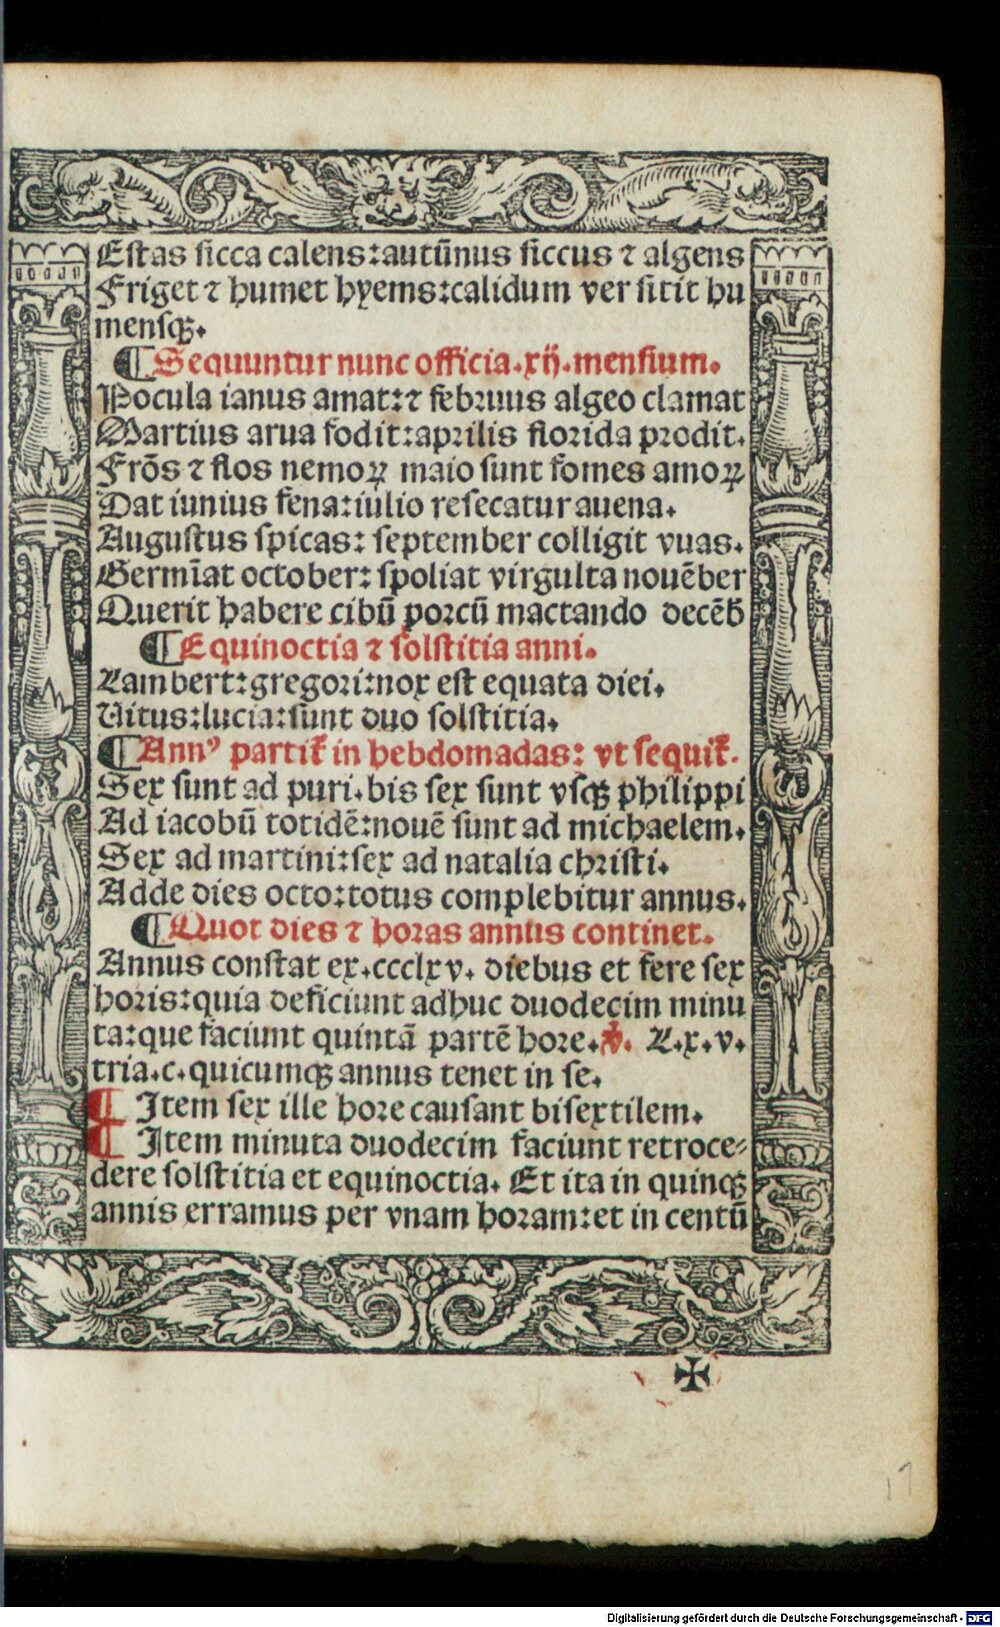 Estas sicca calens:autũnus siccus ⁊ algens
Friget ⁊ humet hyems:calidum ver sitit hu
mensqꝫ.
¶Sequuntur nunc officia.xij.mensium.
Pocula ianus amat:⁊ februus algeo clamat
Martius arua fodit:aprilis florida prodit.
Frōs ⁊ flos nemoꝝ maio sunt fomes amoꝝ
Dat iunius fena:iulio resecatur auena.
Augustus spicas: september colligit vuas.
Germīat october: spoliat virgulta nouēber
Querit habere cibū porcū mactando decēb
¶Equinoctia ⁊ solstitia anni.
Lambert:gregori:nox est equata diei.
Vitus:lucia:sunt duo solstitia.
¶Annꝰ partit᷑ in hebdomadas: vt sequit᷑.
Sex sunt ad puri.bis sex sunt vsqꝫ philippi
Ad iacobū totidē:nouē sunt ad michaelem.
Sex ad martini:sex ad natalia christi.
Adde dies octo:totus complebitur annus.
¶Quot dies ⁊ horas annus continet.
Annus constat ex.ccclxv. diebus et fere sex
horis:quia deficiunt adhuc duodecim minu
ta:que faciunt quintā partē hore.℣. L.x.v.
tria.c.quicumqꝫ annus tenet in se.
¶ Item sex ille hore causant bisextilem.
¶ Item minuta duodecim faciunt retroce⸗
dere solstitia et equinoctia. Et ita in quinqꝫ
annis erramus per vnam horam:et in centū
✠
17
Digitalisierung gefördert durch die Deutsche Forschungsgemeinschaft - DFG